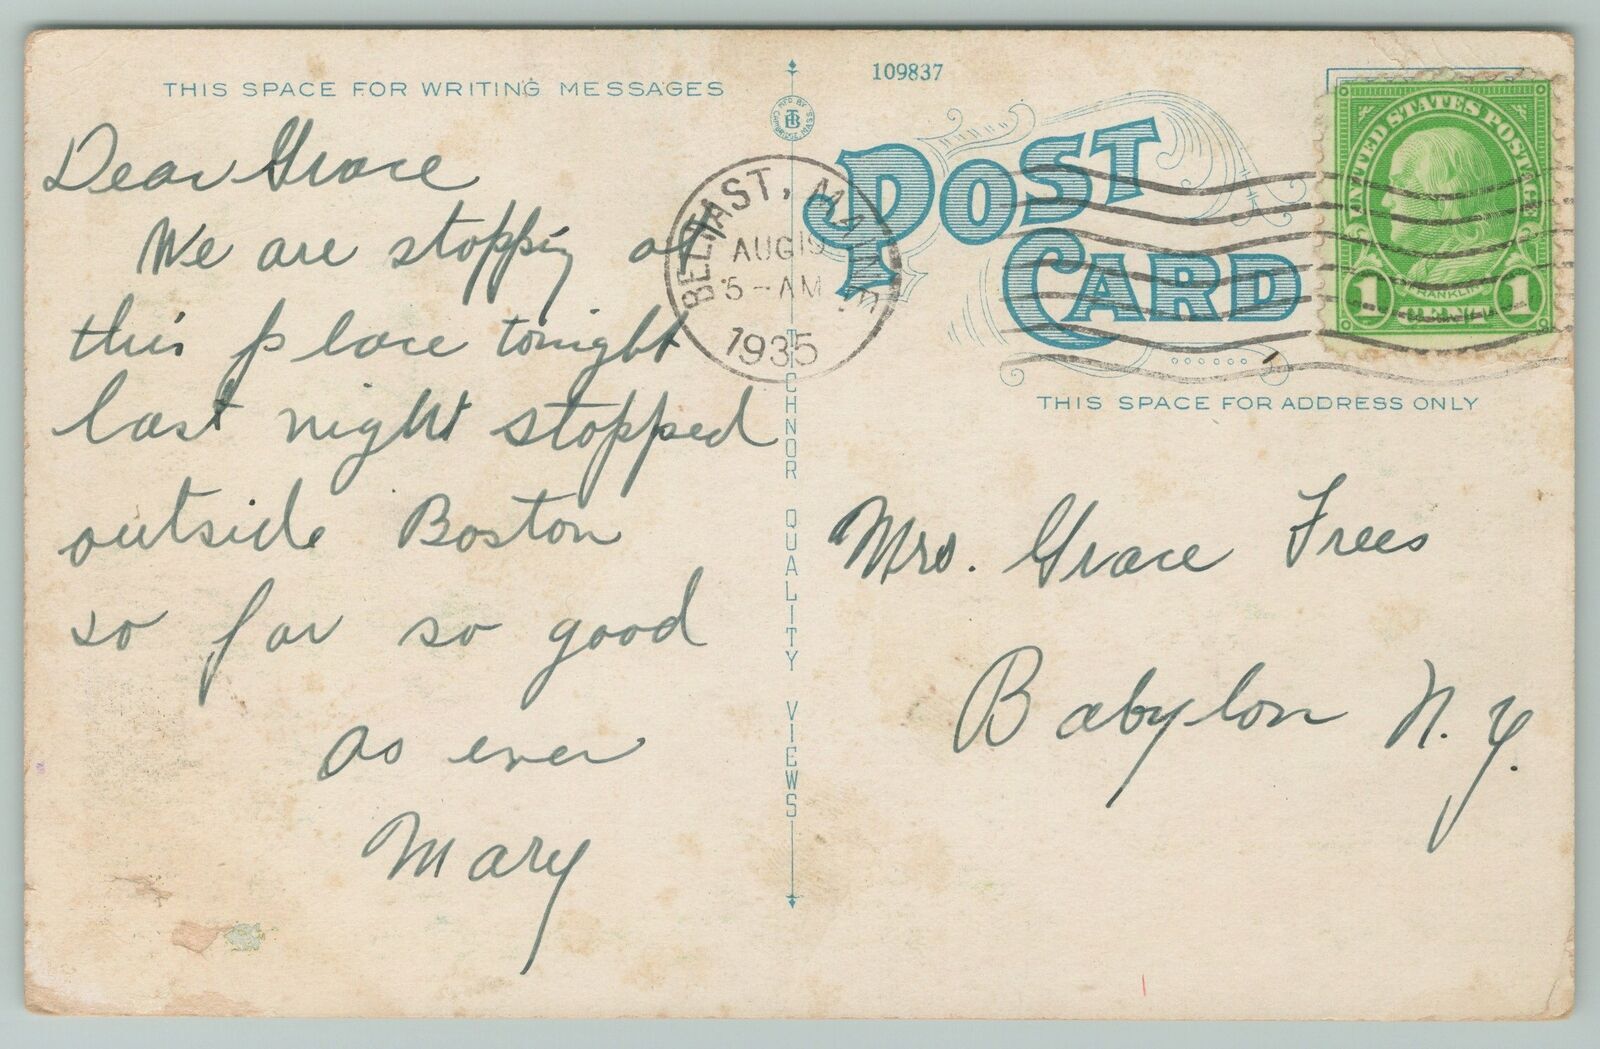 THIS SPACE FOR WRITING MESSAGES
Dear Grace
We are stopping at
this place tonight
last night stopped
outside Boston
so far so good
as ever
Mary
MFD. BY
TB
CAMBRIDGE, MASS.
TICHNOR QUALITY VIEWS
109837
POST
CARD
BELFAST, MAINE
AUG 19
5-AM
1935
UNITED STATES POSTAGE
1 FRANKLIN 1
THIS SPACE FOR ADDRESS ONLY
Mrs. Grace Frees
Babylon N.Y.